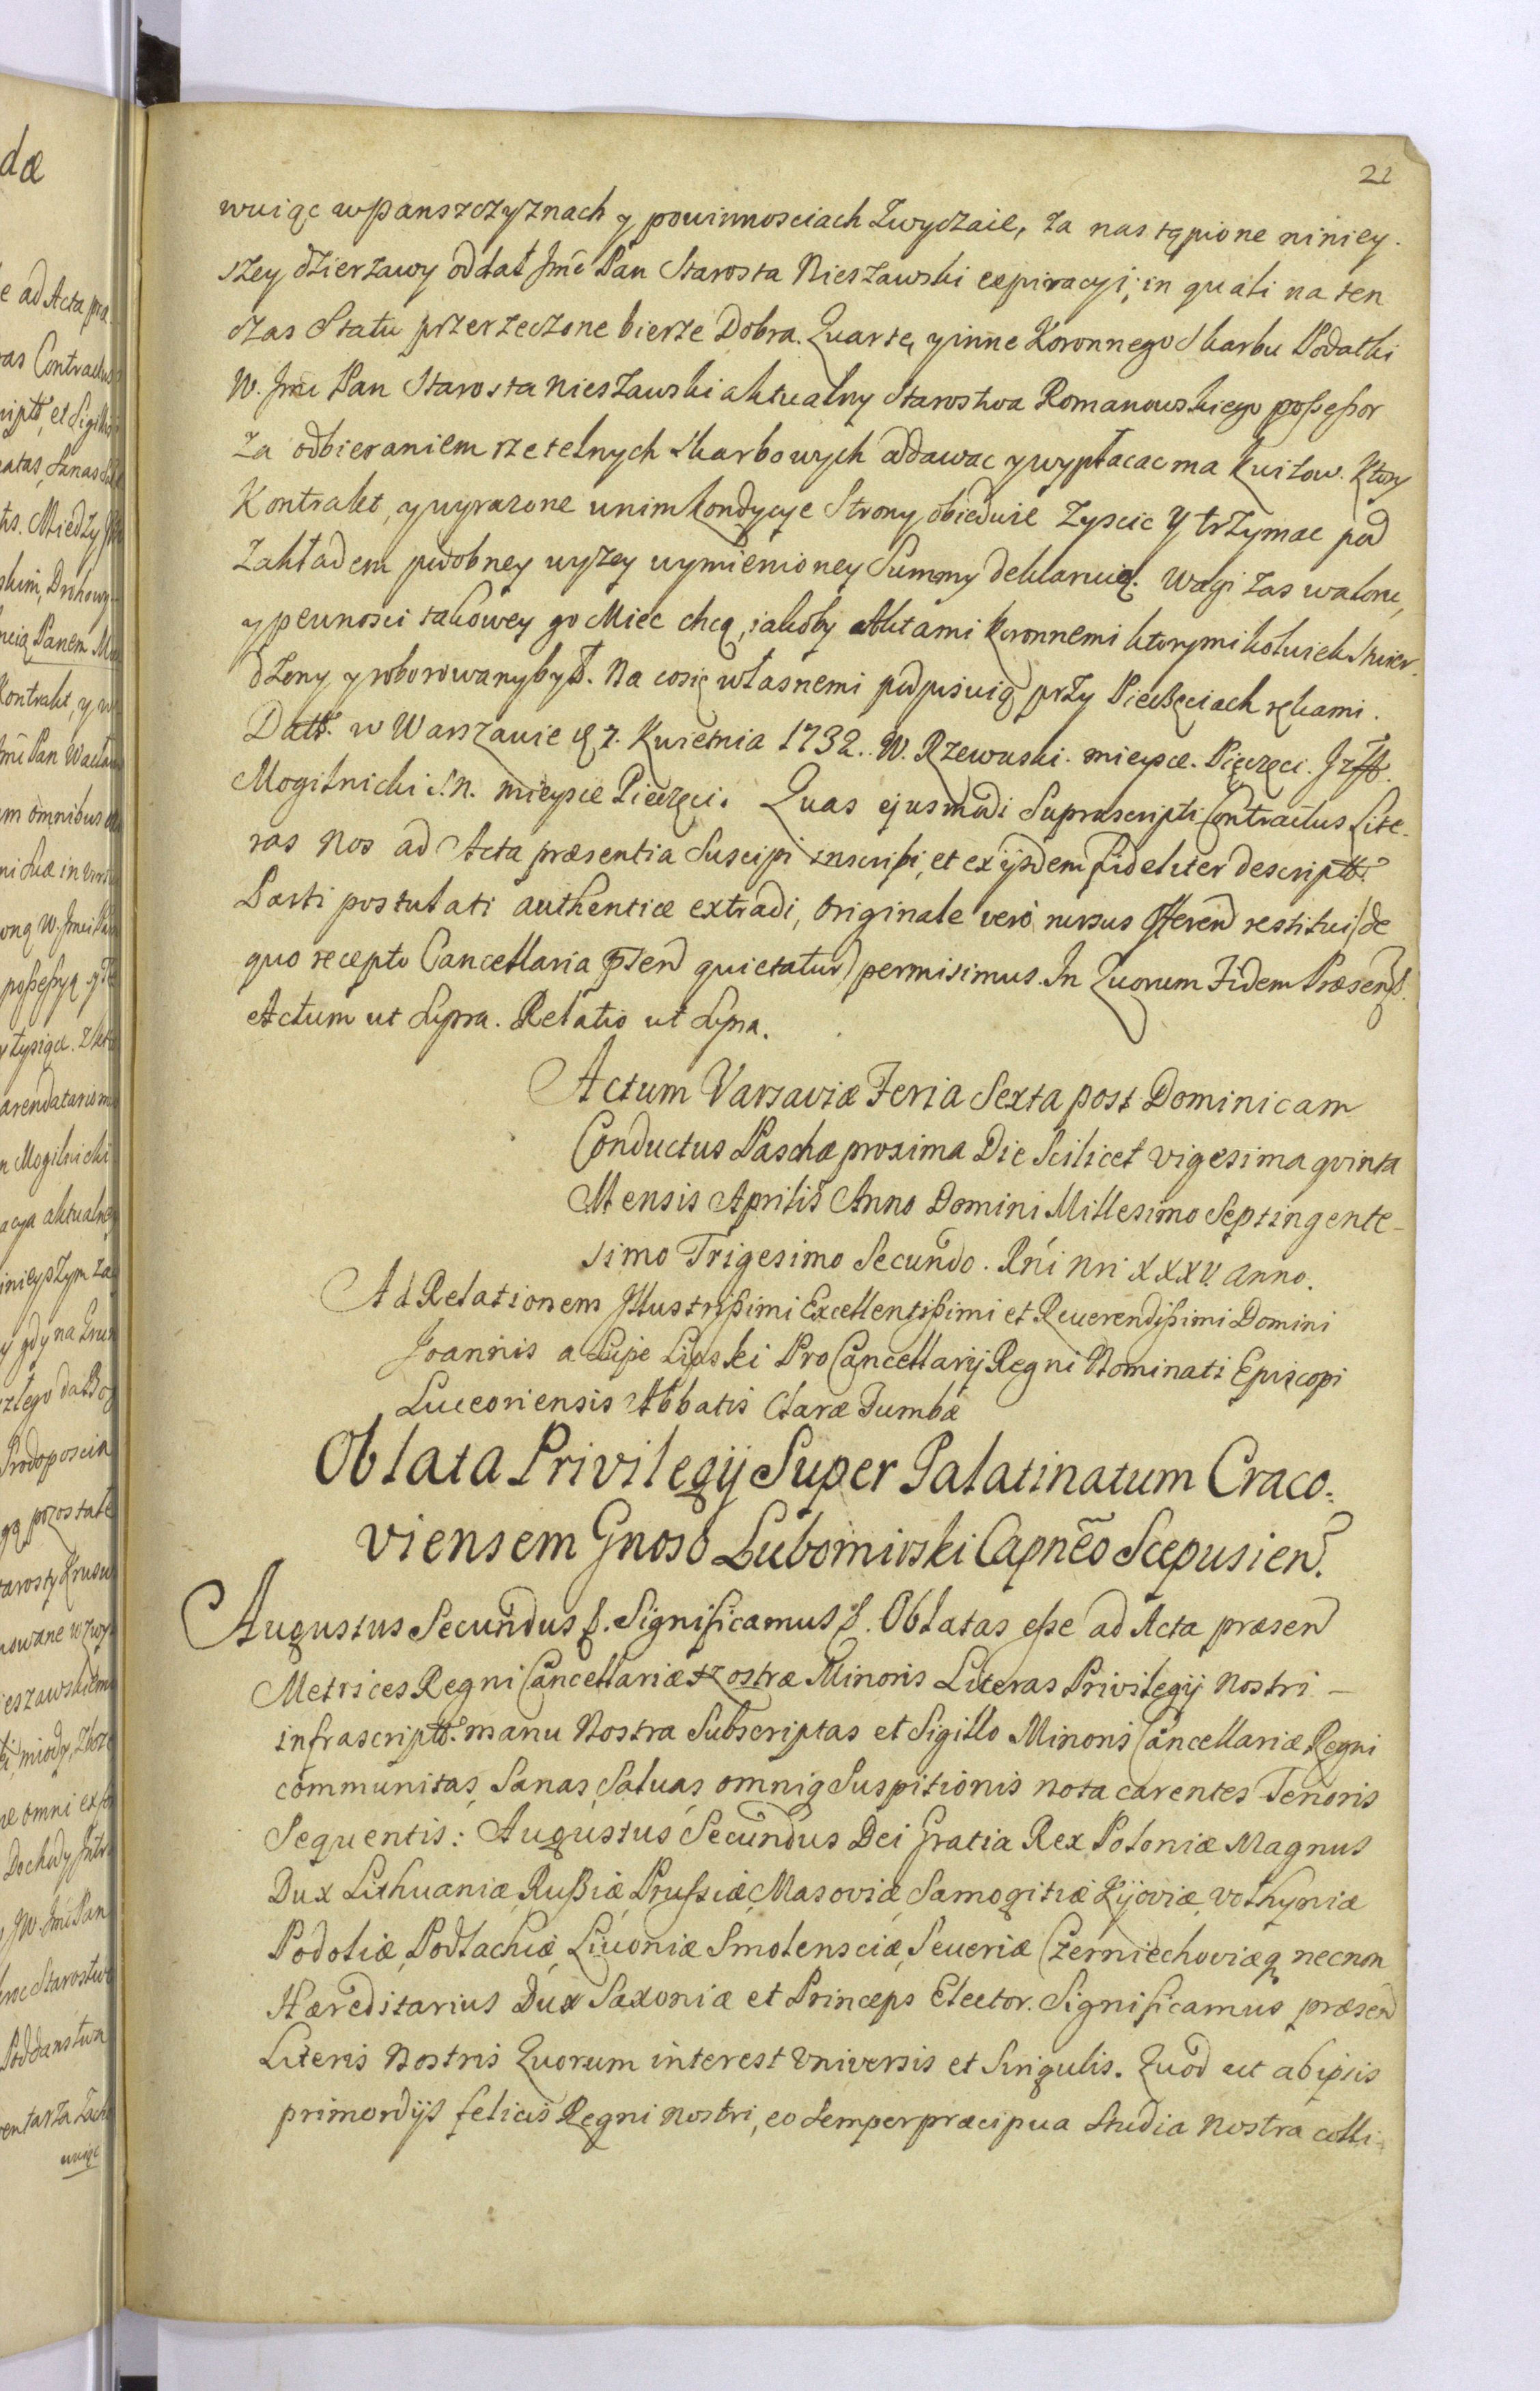 21
wuiąc w Panszczyznach y powinnosciach Zwyczaie, za nastąpione niniey.
szey dzierzawy oddał Jmć Pan Starosta Nieszawski expiracyi; in quali na ten
czas Statu przerzeczone bierze Dobra. Quartę y inne Koronnego Skarbu Podatki
W. Jmć Pan Starosta Nieszawski aktualny Starostwa Romanowskiego poßeßor
za odbieraniem rzetelnych skarbowych oddawac y wypłacac ma kwitow. Ktory
Kontrakt, y wyrazone w nim kondycye Strony obiedwie zyscic y trzymac pod
Zakładem podobney wyzey wymienioney Summy deklaruią. Wagi zas waloru,
y pewnosci takowey go Miec chcą, iakoby Aktami koronnemi ktorymi kolwiek stwier
dzony y roborowany był. Na co się własnemi podpisuią przy Pieczęciach rękami.
Datt. w Warszawie d. 7. Kwietnia 1732. W. Rzewuski. mieysce. Pięczęci. Jozeff.
Mogilnicki S.N. mieysce Pieczęci. Quas ejusmodi Suprascripti Contractus Lite-
ras Nos ad Acta præsentia Suscipi inscribi, et ex ijsdem fideliter descriptt.
Parti postulati authentice extradi, Originale verò rursus Offeren restitui (de
quo recepto Cancellaria pnsen quietatur) permisimus. In Quorum Fidem Præsens.
Actum ut Supra. Relatio ut Supra.
Actum Varsaviæ Feria Sexta post Dominicam
Conductus Paschæ proxima Die Scilicet vigesima quinta
Mensis Aprilis Anno Domini Millesimo Septingente-
simo Trigesimo Secundo. Rni Nri XXXV. anno.
Ad Relationem Illustrißimi Excellentißimi et Reverendißimi Domini
Joannis a Lipe Lipski Pro Cancellarij Regni Nominati Episcopi
Luceoriensis Abbatis Claræ Tumbæ
Oblata Privilegij Super Palatinatum Craco:
viensem Gnoso Lubomirski Capnēo Scepusien.
Augustus Secundus &. Significamus &. Oblatas eße ad Acta præsen
Metrices Regni Cancellariæ Nostræ Minoris Literas Privilegij Nostri –
infrascriptt. manu Nostra Subscriptas et Sigillo Minoris Cancellariæ Regni
communitas, Sanas, Saluas, omniq Suspitionis nota carentes Tenoris
Sequentis: Augustus Secundus Dei Gratia Rex Poloniæ Magnus
Dux Lithuaniæ, Rußiæ, Prußiæ, Masoviæ, Samogitiæ Kijoviæ, Volhyniæ
Podoliæ, Podlachiæ, Livoniæ Smolensciæ, Seueriæ Czerniechoviæq necnon
Hæreditarius Dux Saxoniæ et Princeps Elector. Significamus præsen
Literis Nostris Quorum interest Universis et Singulis. Quod ut ab ipsis
primordijs felicis Regni Nostri, eo semper præcipua studia nostra colli-